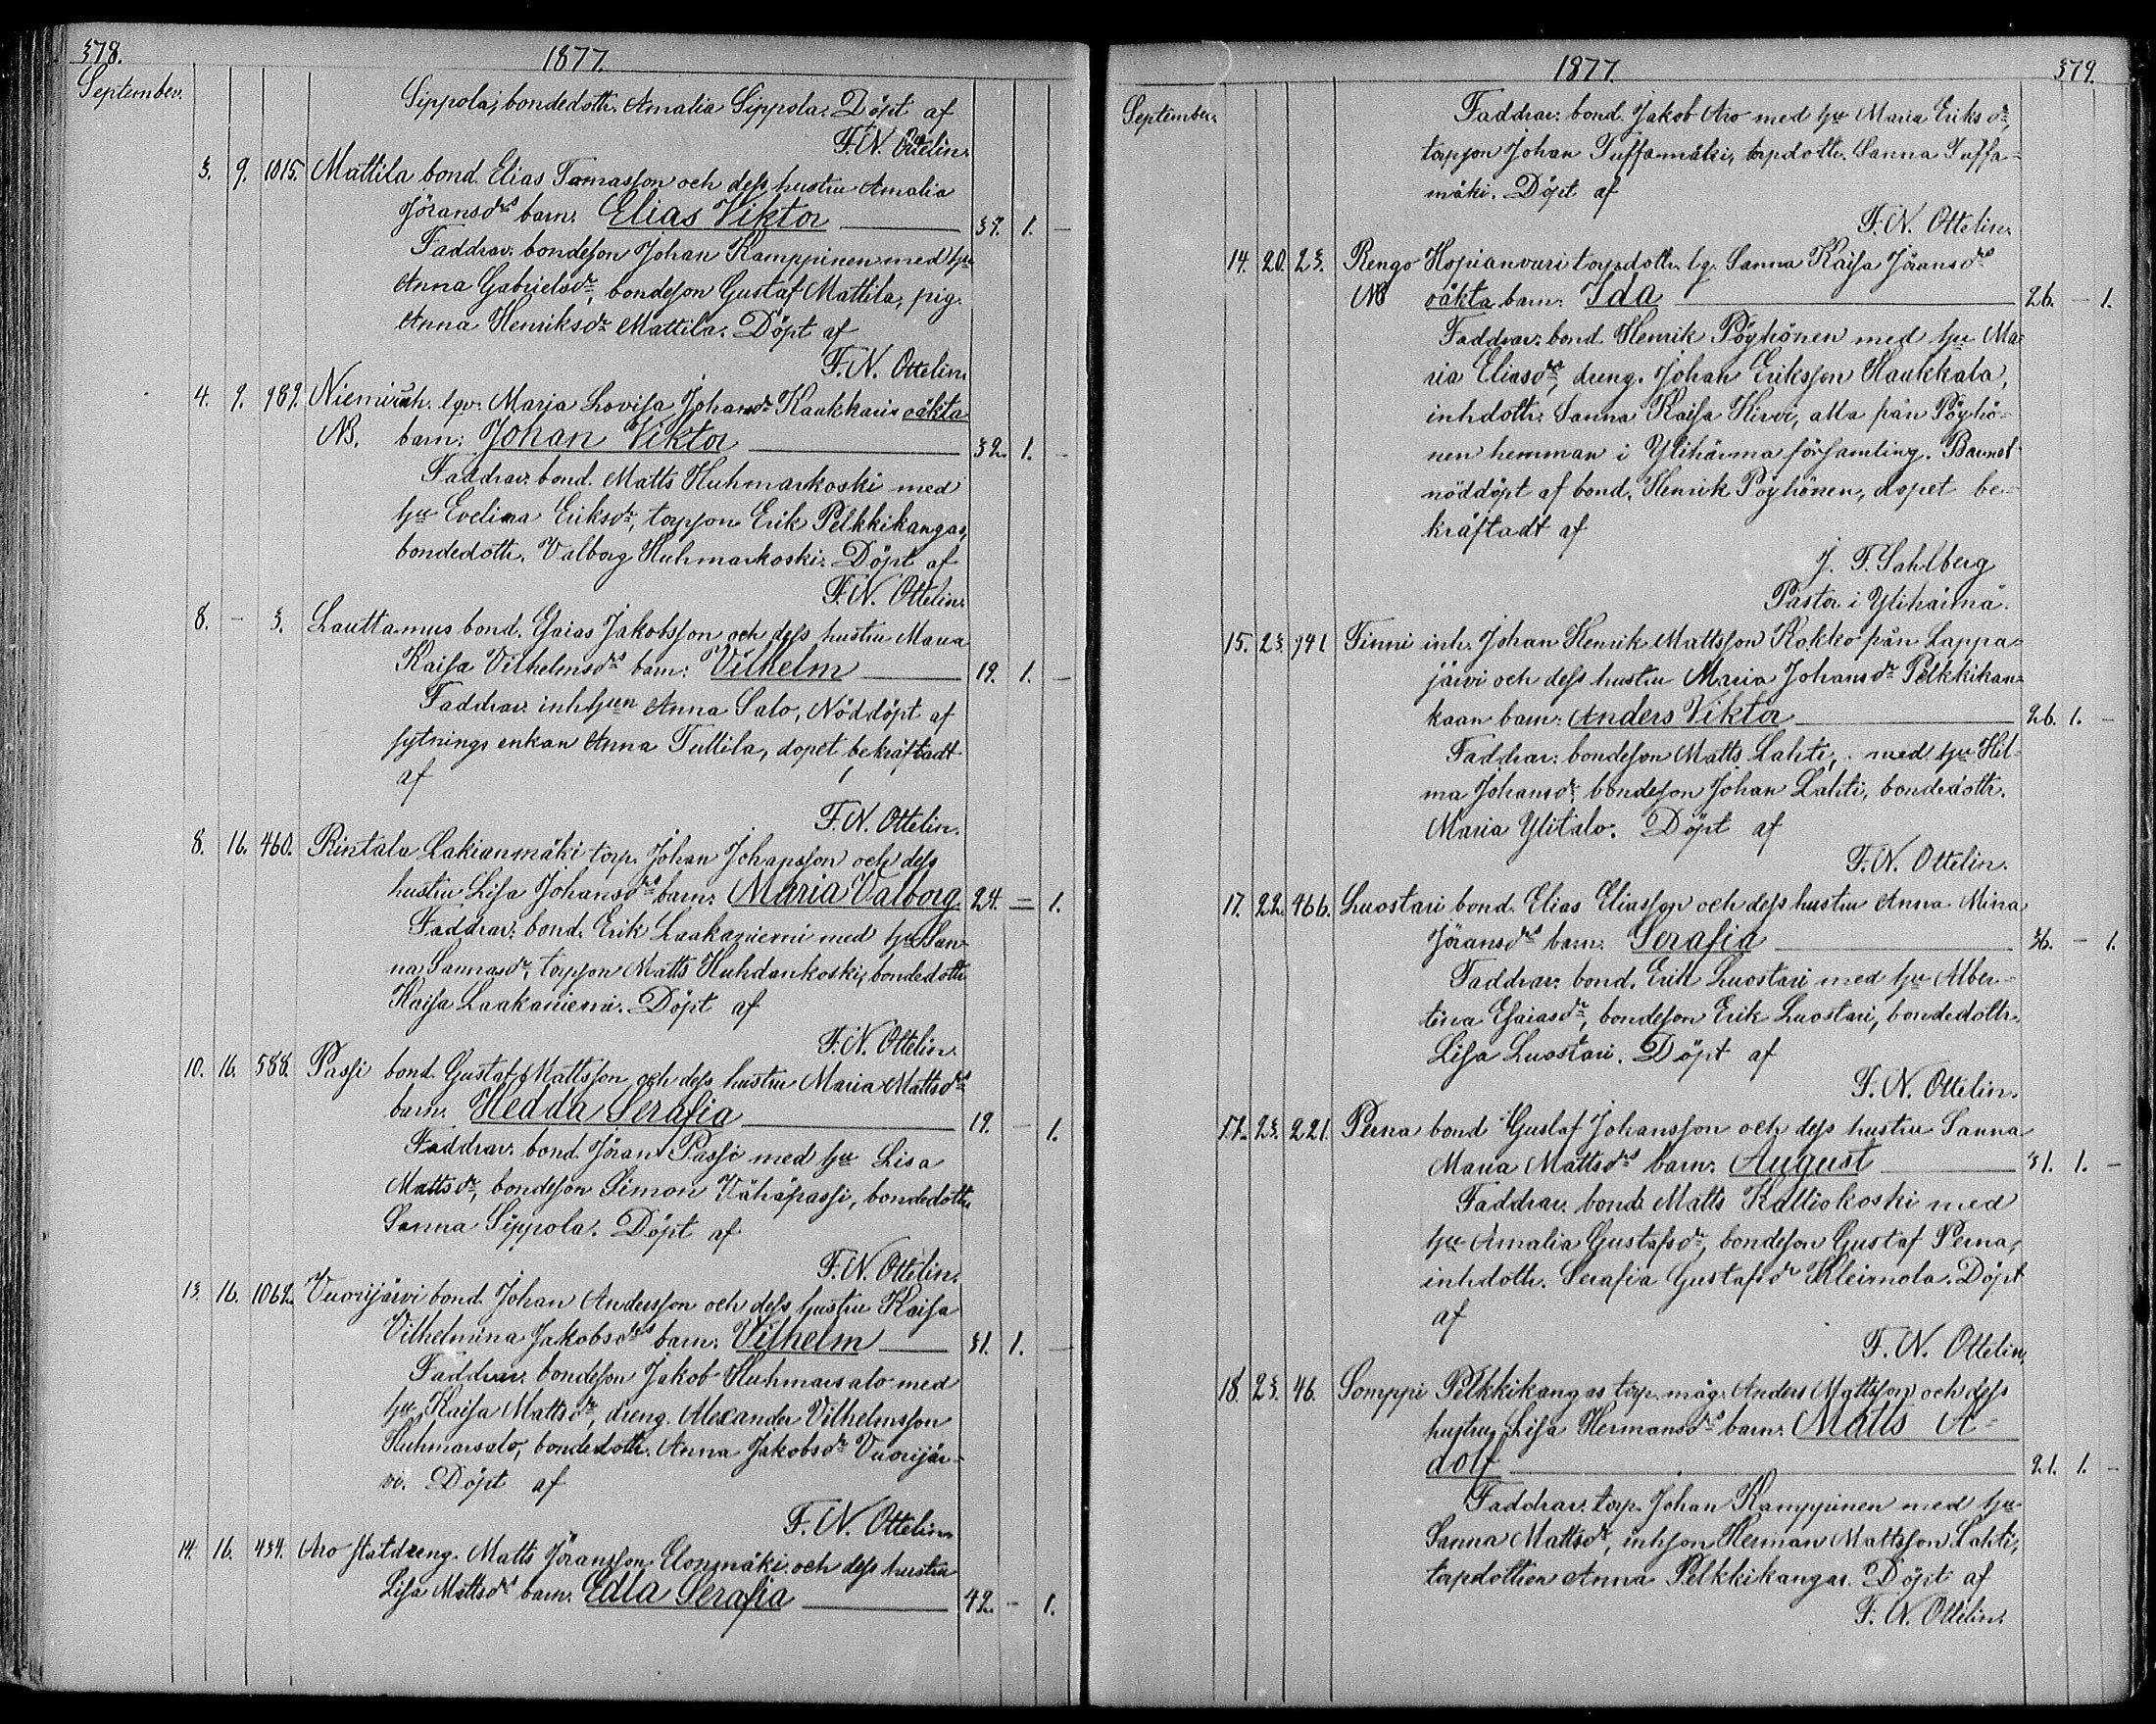 378.
1877.
September.
Sippola, bondedottr. Amalia Sippola. Döpt af
F. N. Ottelin.
3. 9. 1015. Mattila bond. Elias Tomasson och dess hustru Amalia
Jöransdrs barn: Elias Viktor 37. 1. –
Faddrar: bondeson Johan Kamppinen med hu
Anna Gabrielsdr, bondeson Gustaf Mattila, pig.
Anna Henriksdr Mattila. Döpt af
F. N. Ottelin.
4. 9. 989. Niemi inh. lqv. Maria Lovisa Johansdr Kaakkaris oäkta
NB. barn: Johan Viktor 32. 1. –
Faddrar: bond. Matts Huhmarkoski med
hu Evelina Eriksdr, torpson Erik Pelkkikangas,
bondedottr. Valborg Huhmarkoski. Döpt af
F. N. Ottelin.
8. – 3. Lauttamus bond. Esaias Jakobsson och dess hustru Maria
Kaisa Vilhelmsdrs barn: Vilhelm 19. 1. –
Faddrar: inhhun Anna Salo, Nöddöpt af
sytnings enkan Anna Tullila, dopet bekräftadt
af
F. N. Ottelin.
8. 16. 460. Rintala Lakianmäki torp. Johan Johansson och dess
hustru Lisa Johansdrs barn: Maria Valborg 24. – 1.
Faddrar: bond. Erik Laakaniemi med hu San-
na Sannasdr, torpson Matts Huhdankoski, bondedottr
Kaisa Laakaniemi. Döpt af
F. N. Ottelin.
10. 16. 588. Passi bond. Gustaf Mattsson och dess hustru Maria Mattsdrs
barn: Hedda Serafia 19. – 1.
Faddrar: bond. Jöran Passi med hu Lisa
Mattsdr, bondeson Simon Vähäpassi, bondedottr
Sanna Sippola. Döpt af
F. N. Ottelin.
13. 16. 1062. Vuorijärvi bond. Johan Andersson och dess hustru Kaisa
Vilhelmina Jakobsdrs barn: Vilhelm 31. 1. –
Faddrar: bondeson Jakob Huhmarsalo med
hu Kaisa Mattsdr, dreng. Alexander Vilhelmsson
Huhmarsalo, bondedottr. Anna Jakobsdr Vuorijär-
vi. Döpt af
F. N. Ottelin.
14. 16. 434. Aro statdreng. Matts Jöransson Elommäki och dess hustru
Lisa Mattsdrs barn: Edla Serafia 42. – 1.
1877.
379.
September.
Faddrar: bond. Jakob Aro med hu Maria Eriksdr,
torpson Johan Tussamäki, torpdottr. Sanna Tussa-
mäki. Döpt af
F. N. Ottelin.
14. 20. 23. Rengo Hopianvuori torpdottr. lq. Sanna Kaisa Jöransdrs
NB oäkta barn: Ida 26. – 1.
Faddrar: bond. Henrik Pöyhönen med hu Ma-
ria Eliasdr, dreng. Johan Eriksson Haukkala,
inhdottr. Sanna Kaisa Hirvi, alla från Pöyhö-
nen hemman i Ylihärmä församling. Barnet
nöddöpt af bond. Henrik Pöyhönen, dopet be-
kräftadt af
J. F. Sahlberg
Pastor i Ylihärmä.
15. 23. 941 Finni inh. Johan Henrik Mattsson Kokko från Lappa-
järvi och dess hustru Maria Johansdr Pelkkikan-
kaan barn: Anders Viktor 26. 1. –
Faddrar: bondeson Matts Lahti, med hu Hil-
ma Johansdr, bondeson Johan Lahti, bondedottr.
Maria Ylitalo. Döpt af
F. N. Ottelin.
17. 22. 466. Luostari bond. Elias Eliasson och dess hustru Anna Mina
Jöransdrs barn: Serafia 36. – 1.
Faddrar: bond. Erik Luostari med hu Alber-
tina Esaiasdr, bondeson Erik Luostari, bondedottr.
Lisa Luostari. Döpt af
F. N. Ottelin.
17. 23. 221. Perna bond Gustaf Johansson och dess hustru Sanna
Maria Mattsdrs barn: August 31. 1. –
Faddrar: bond. Matts Kaltiokoski med
hu Amalia Gustafsdr, bondeson Gustaf Perna,
inhdottr. Serafia Gustafsdr Kleimola. Döpt
af
F. N. Ottelin.
18. 23. 46. Somppi Pelkkikangas torp. måg. Anders Mattsson och dess
hustru Lisa Hermansdrs barn: Matts A-
dolf 21. 1. –
Faddrar: torp. Johan Kamppinen med hu
Sanna Mattsdr, inhson Herman Mattsson Lahti,
torpdottren Anna Pelkkikangas. Döpt af
F. N. Ottelin.